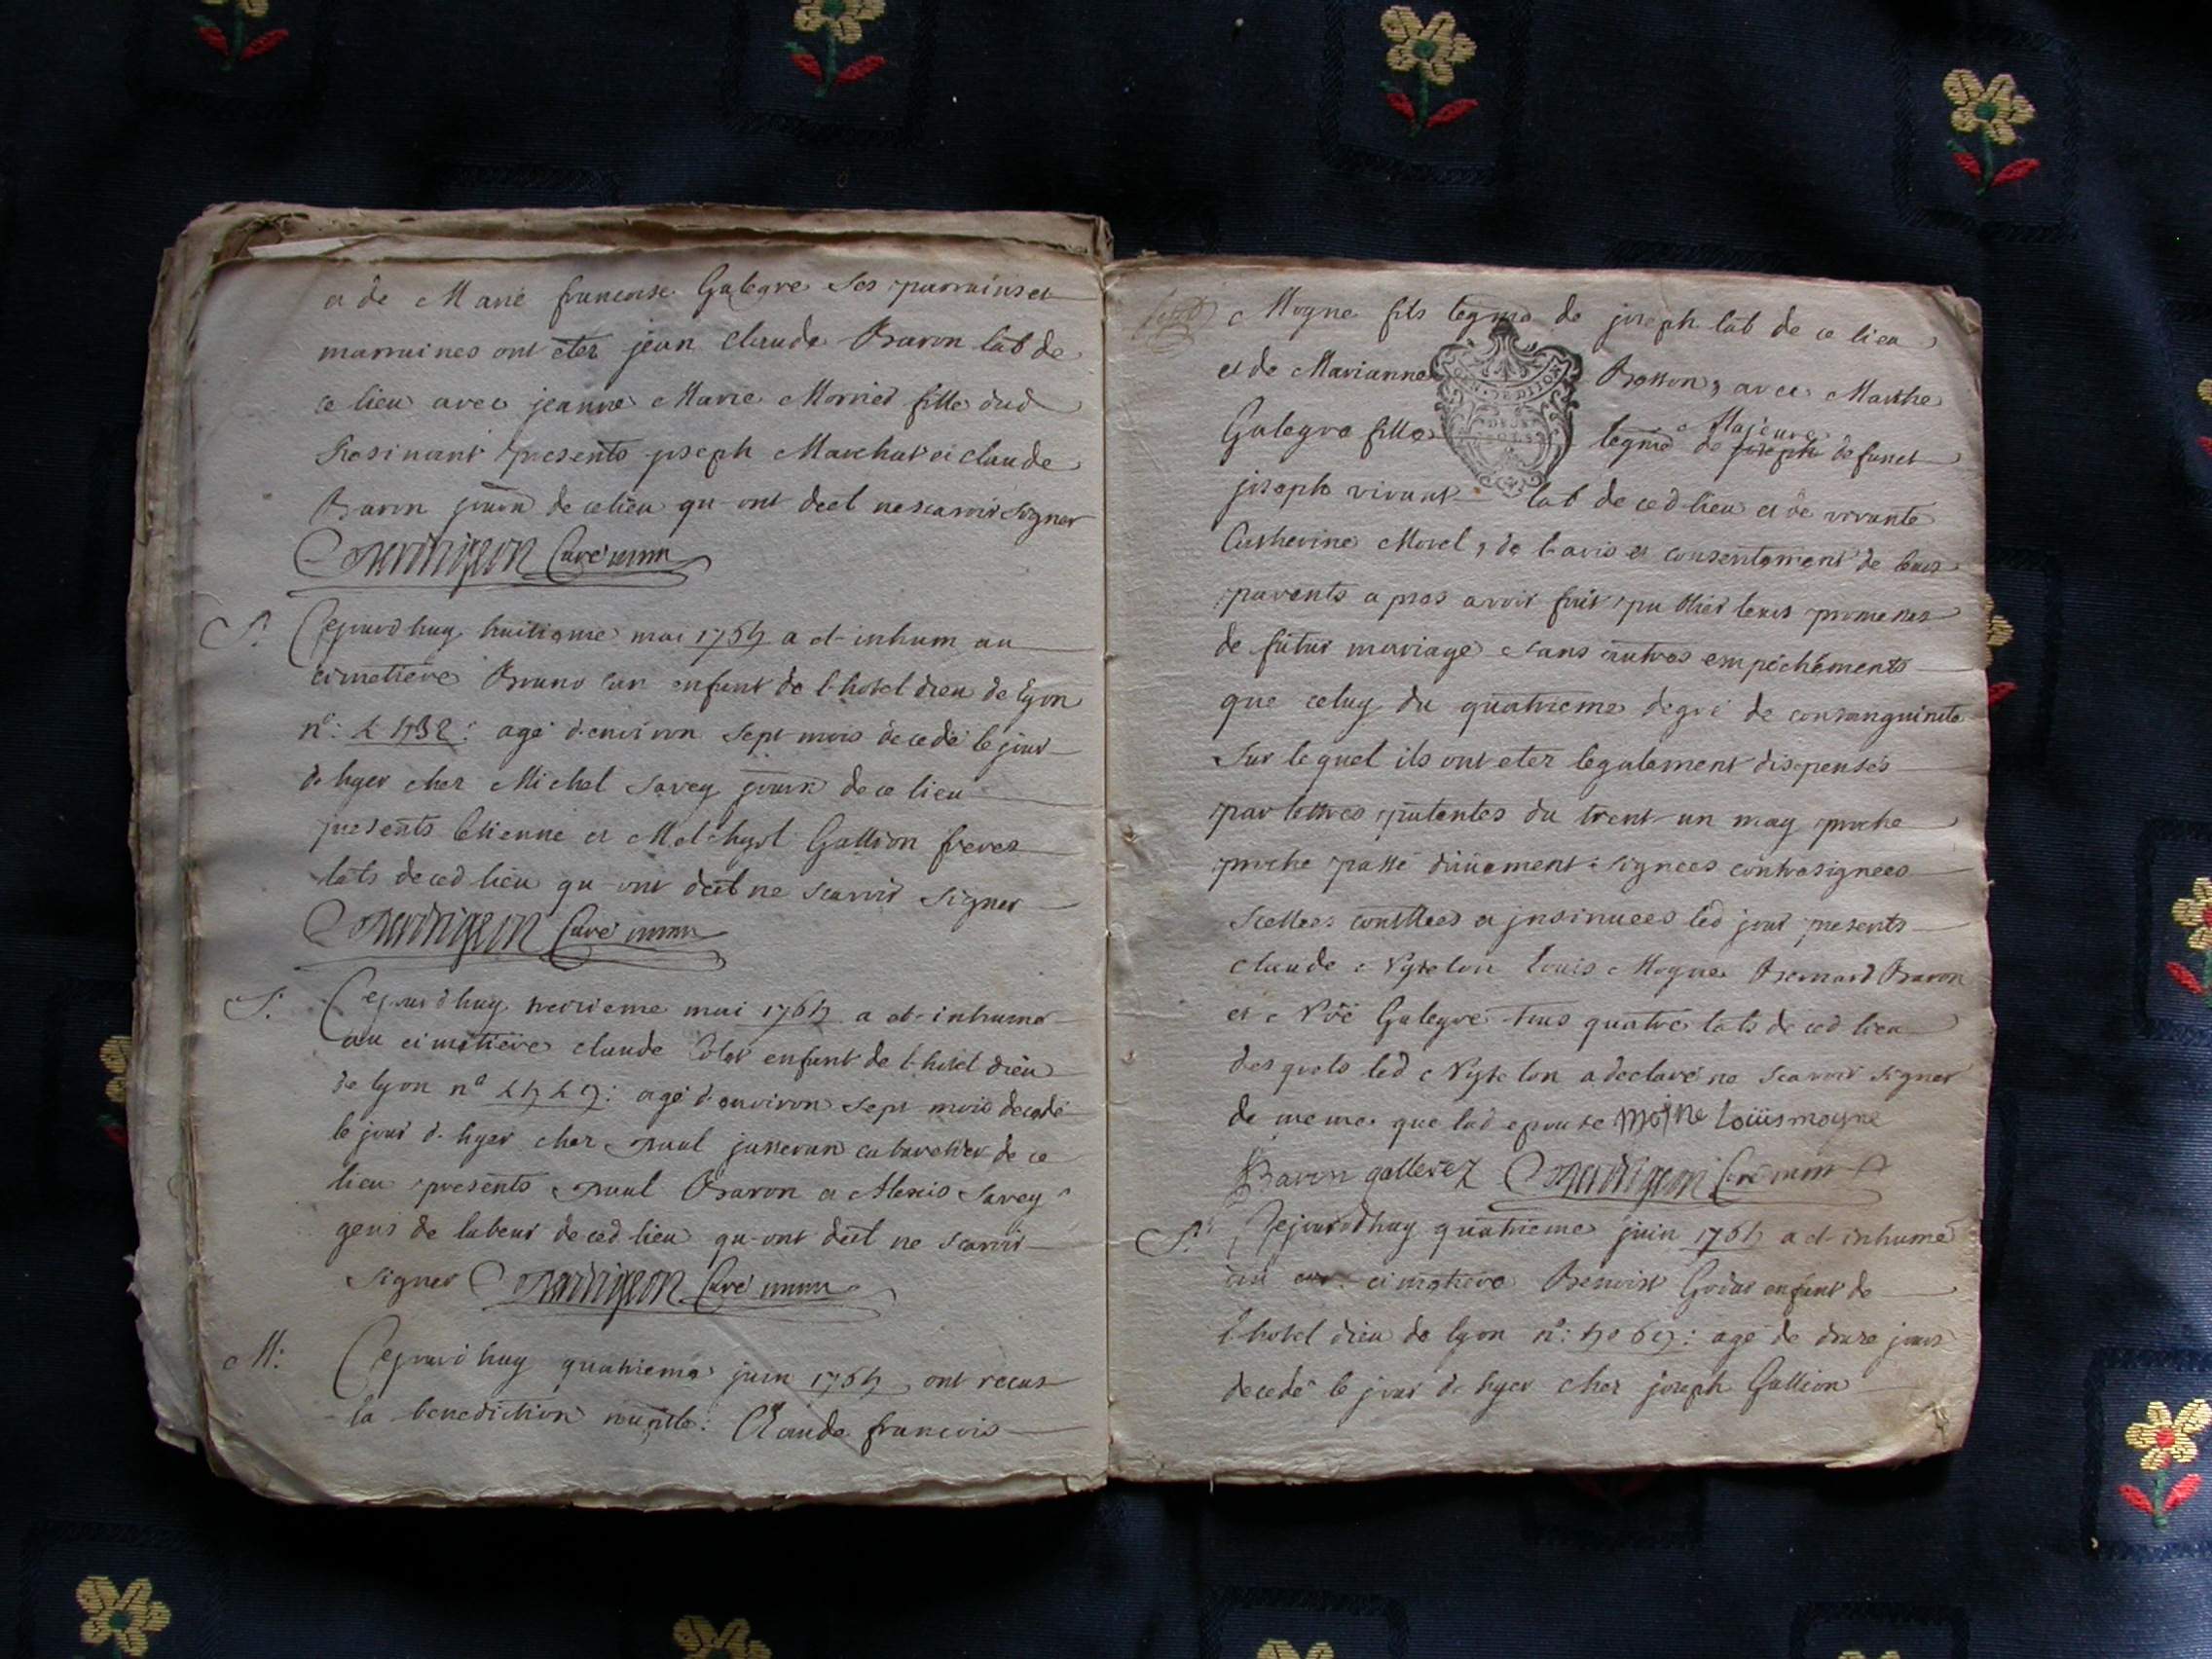 et de Marie francoise Galegre ses parrains et
marraines ont eter jean claude Baron lab de
ce lieu avec jeanne Marie fille dud
presents joseph Marchat et claude
Baron journ de ce lieu qu-ont decl ne scavoir signer
Curé
S: Cejourdhuy huitieme mai 1764 a et-inhum au
cimetiere Bruno un enfant de l-hotel dieu de lyon
n°: agé d-environ sept mois decedé le jour
d-hyer cher Michel Savey journ de ce lieu
presents Etienne et Melchyol Gallion freres
labs de ced lieu qu-ont decl ne scavoir signer
Curé
S: Cejourdhuy mai 1764 a et-inhumé
au cimetiere claude enfant de l-hotel dieu
de lyon n° agé d-environ sept mois decedé
le jour d-hyer cher paul cabaretier de ce
lieu presents paul Baron et Alexis Savey
gens de labeur de ced lieu qu-ont decl ne scavoir
signer Curé
M: Cejourdhuy quatrieme juin 1764 ont recus
la benediction nuptle: Claude francois
Mogne fils legme de joseph lab de ce lieu
et de Marianne avec Marthe
Majeure
Galegre fille legme de joseph defunct
joseph vivant lab de ced lieu et de vivante
Catherine Morel, de l-avis et consentement de leurs
parents apres avoir fait publier leurs promesses
de futur mariage sans autres empéchéments
que celuy du quatrieme degré de consanguinité
sur lequel ils ont eter legalement dispensés
par lettres patentes du trent-un may proche
proche passé düement signees contresignees
scellees et insinuees led jour presents
claude Louis Mogne Bernard Baron
et Noë Galegre tous quatre labs de ced lieu
desquels led a declaré ne scavoir signer
de meme que lad epouse moine Loüis moyne
Baron gallerez Curé
S: Cejourdhuy quatrieme juin 1764 a et-inhumé
au cimetiere Benoist enfant de
l-hotel dieu de lyon n°: agé de jours
decedé le jour d-hyer cher joseph Gallion